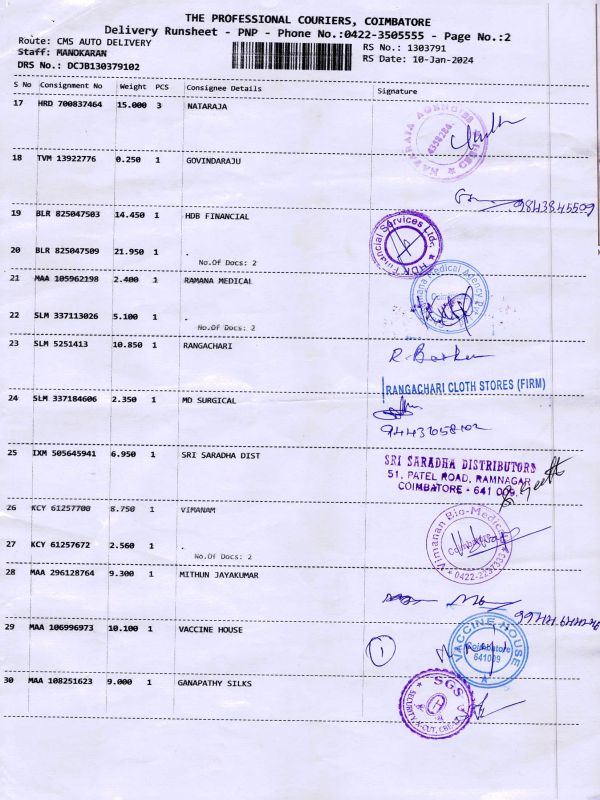 THE PROFESSIONAL COURIERS, COIMBATORE
Delivery Runsheet - PNP - Phone No.:0422-3505555 - Page No.:2
Route: CMS AUTO DELIVERY
RS No.: 1303791
Staff: MANOKARAN
RS Date: 10-Jan-2024
DRS No.: DCJB130379102
S No Consignment No Weight PCS Consignee Details Signature
17 HRD 700837464 15.000 3 NATARAJA
18 TVM 13922776 0.250 1 GOVINDARAJU
9843845509
19 BLR 825047503 14.450 1 HDB FINANCIAL
Financial Services Ltd.
20 BLR 825047509 21.950 1 .
No.Of Docs: 2
21 MAA 105962198 2.400 1 RAMANA MEDICAL
22 SLM 337113026 5.100 1 .
No.Of Docs: 2
23 SLM 5251413 10.850 1 RANGACHARI
RANGACHARI CLOTH STORES (FIRM)
24 SLM 337184606 2.350 1 MD SURGICAL
25 IXM 505645941 6.950 1 SRI SARADHA DIST
SRI SARADHA DISTRIBUTORS
51, PATEL ROAD, RAMNAGAR
COIMBATORE - 641 009.
26 KCY 61257700 8.750 1 VIMANAM
Vimanan Bio-Medical
Coimbatore
27 KCY 61257672 2.560 1 .
No.Of Docs: 2
28 MAA 296128764 9.300 1 MITHUN JAYAKUMAR
29 MAA 106996973 10.100 1 VACCINE HOUSE
1
VACCINE HOUSE
Coimbatore
641009
30 MAA 108251623 9.000 1 GANAPATHY SILKS
SGS